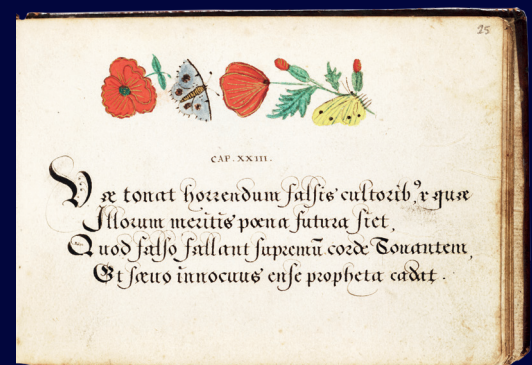 25
CAP. XXIII.
Væ tonat horrendum falsis cultoribꝰ, & quæ
Illorum meritis pœna futura siet,
Quod falso fallant supremū corde Tonantem,
Et sæuo innocuus ense propheta cadat.